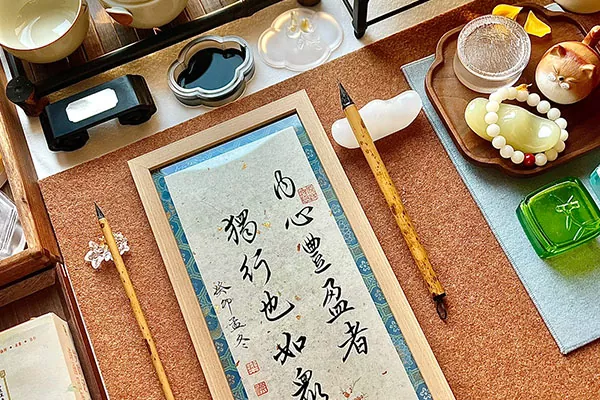 内心豐盈者
獨行也如眾
癸卯孟冬